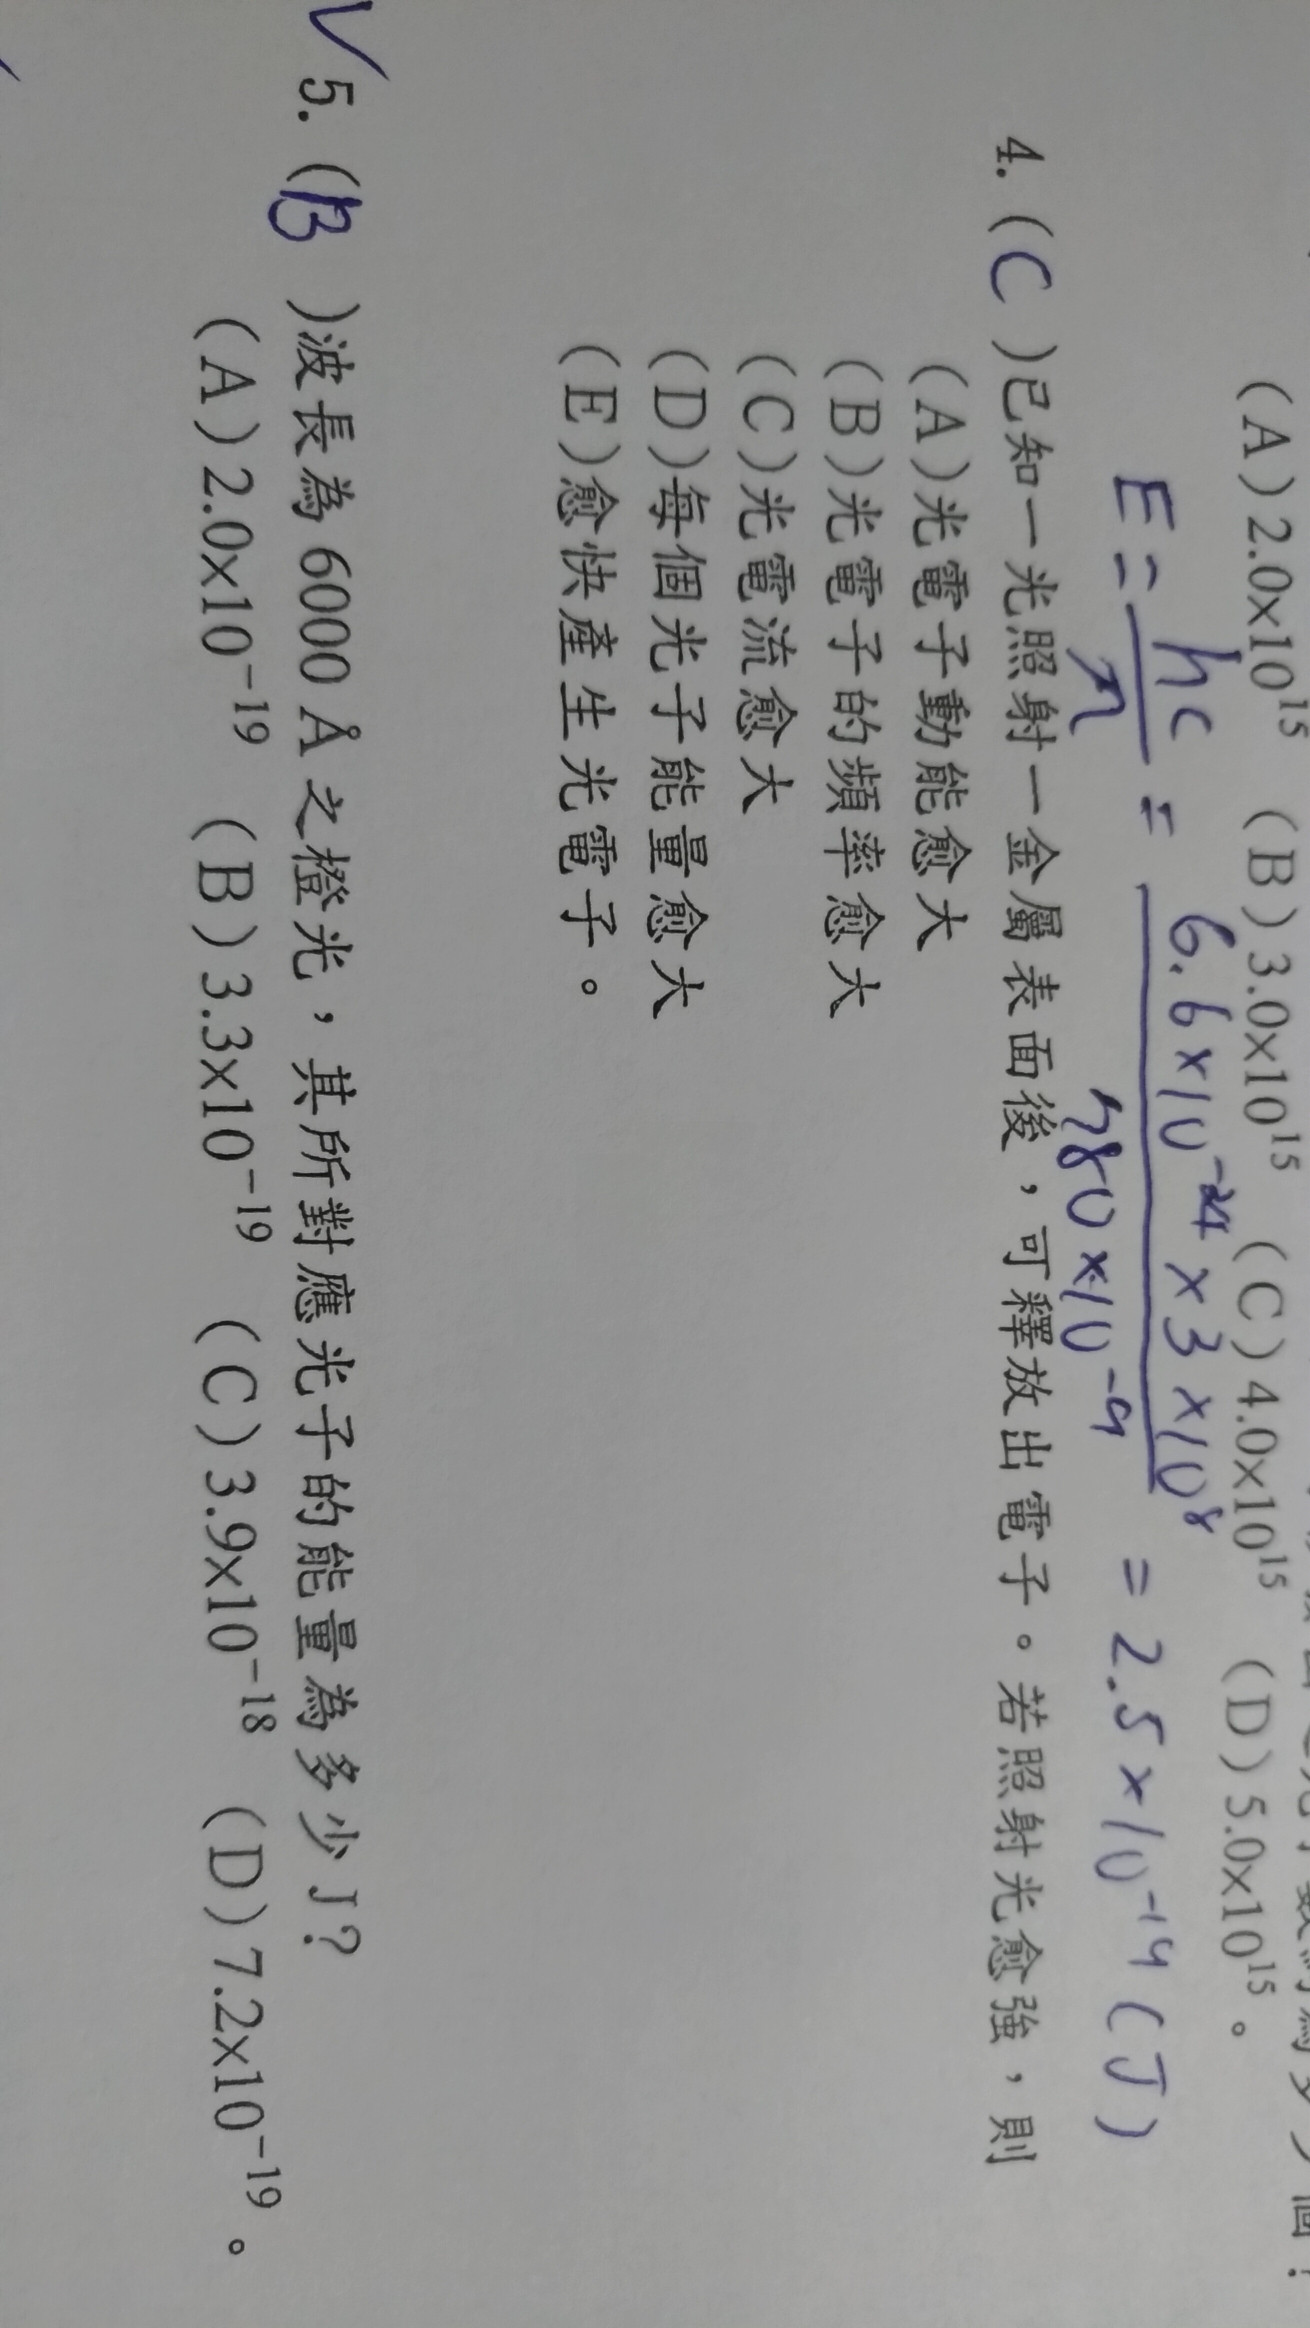 (A)2.0×10¹⁵ (B)3.0×10¹⁵ (C)4.0×10¹⁵ (D)5.0×10¹⁵。
E = hc/λ = 6.6×10⁻²⁴ × 3 ×10⁸ / 780×10⁻⁹ = 2.5×10⁻¹⁹ (J)
4. (C)已知一光照射一金屬表面後，可釋放出電子。若照射光愈強，則
(A)光電子動能愈大
(B)光電子的頻率愈大
(C)光電流愈大
(D)每個光子能量愈大
(E)愈快產生光電子。
5. (B)波長為 6000 Å 之橙光，其所對應光子的能量為多少 J？
(A)2.0×10⁻¹⁹ (B)3.3×10⁻¹⁹ (C)3.9×10⁻¹⁸ (D)7.2×10⁻¹⁹。